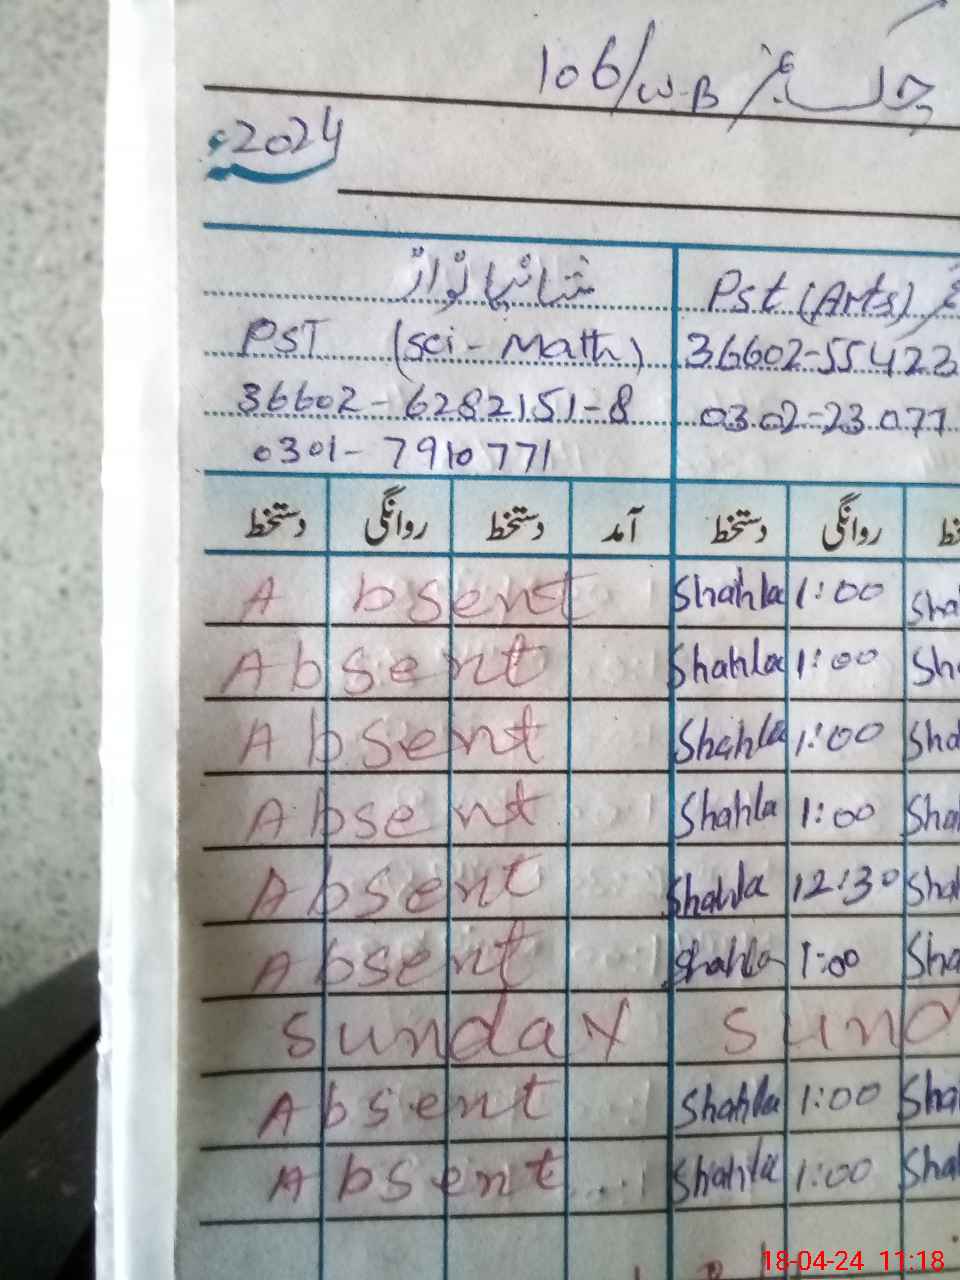 چک نمبر 106/W-B
2024ء
Pst (Arts) شانیا نواز
PST (Sci - Math) 36602-55423
36602-6282151-8 0302-23077
0301-7910771
دستخط روانگی آمد دستخط روانگی دستخط
Absent Shahla 1:00 Sha
Absent Shahla 1:00 Sh
Absent Shahla 1:00 Sha
Absent Shahla 1:00 Sha
Absent Shahla 12:30 Sha
Absent Shahla 1:00 Sha
Sunday Sund
Absent Shahla 1:00 Sha
Absent Shahla 1:00 Sha
18-04-24 11:18